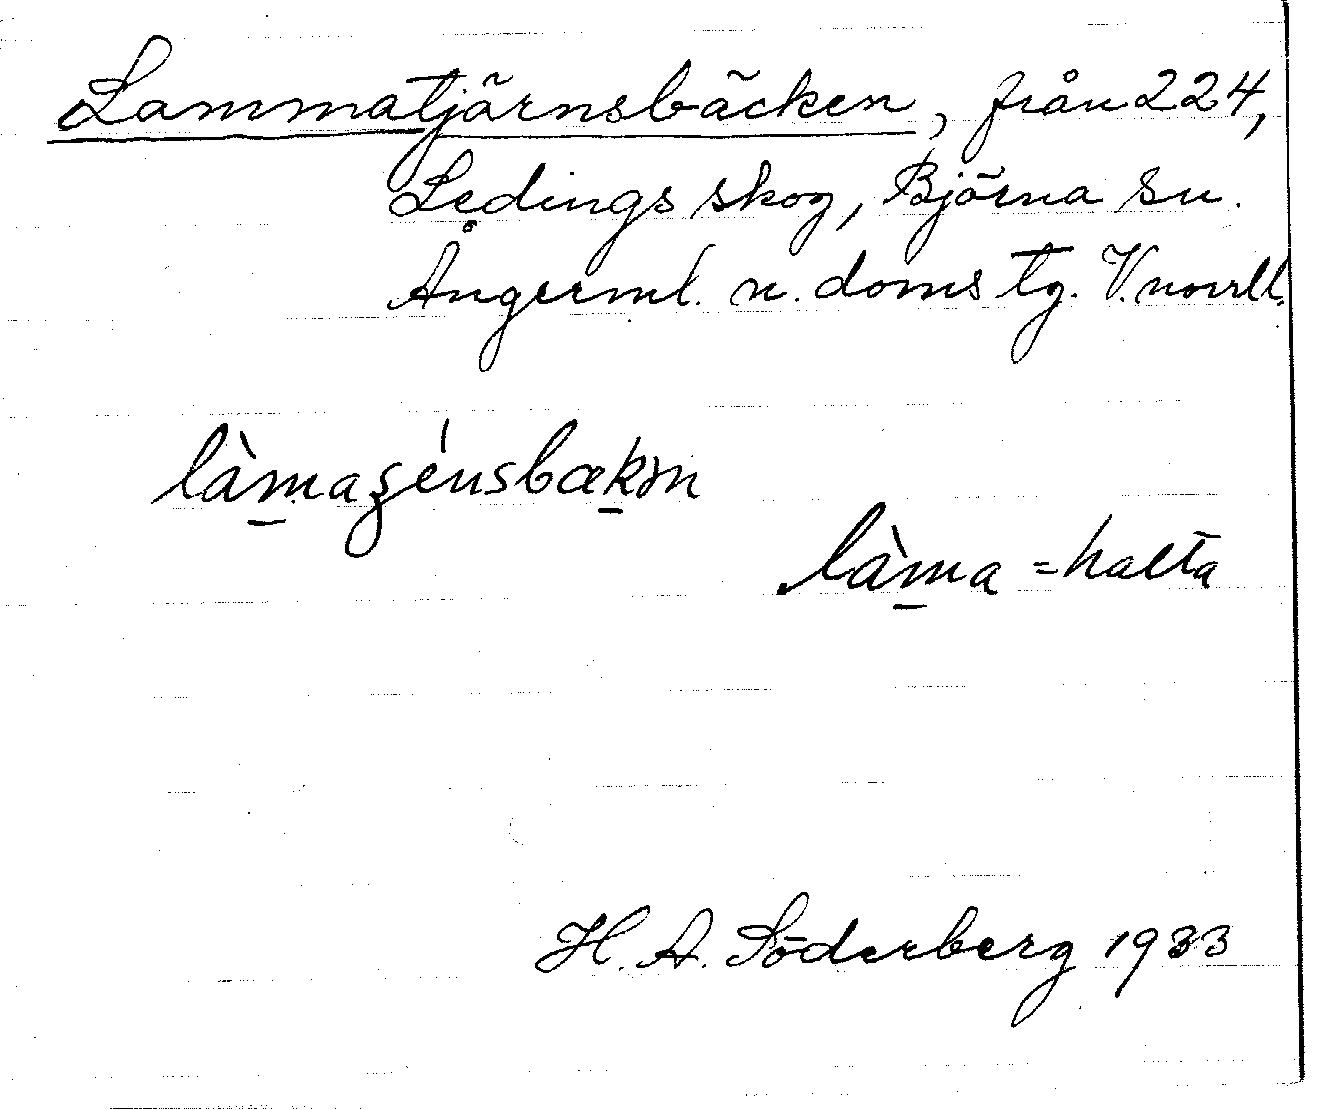 Lammatjärnsbäcken, från 224,
Ledings skog, Björna sn.
Ångerml. n. doms tg. V. norrll.
làm̱aʂénsbæḵən
làm̱a = halta
H. A. Söderberg 1933